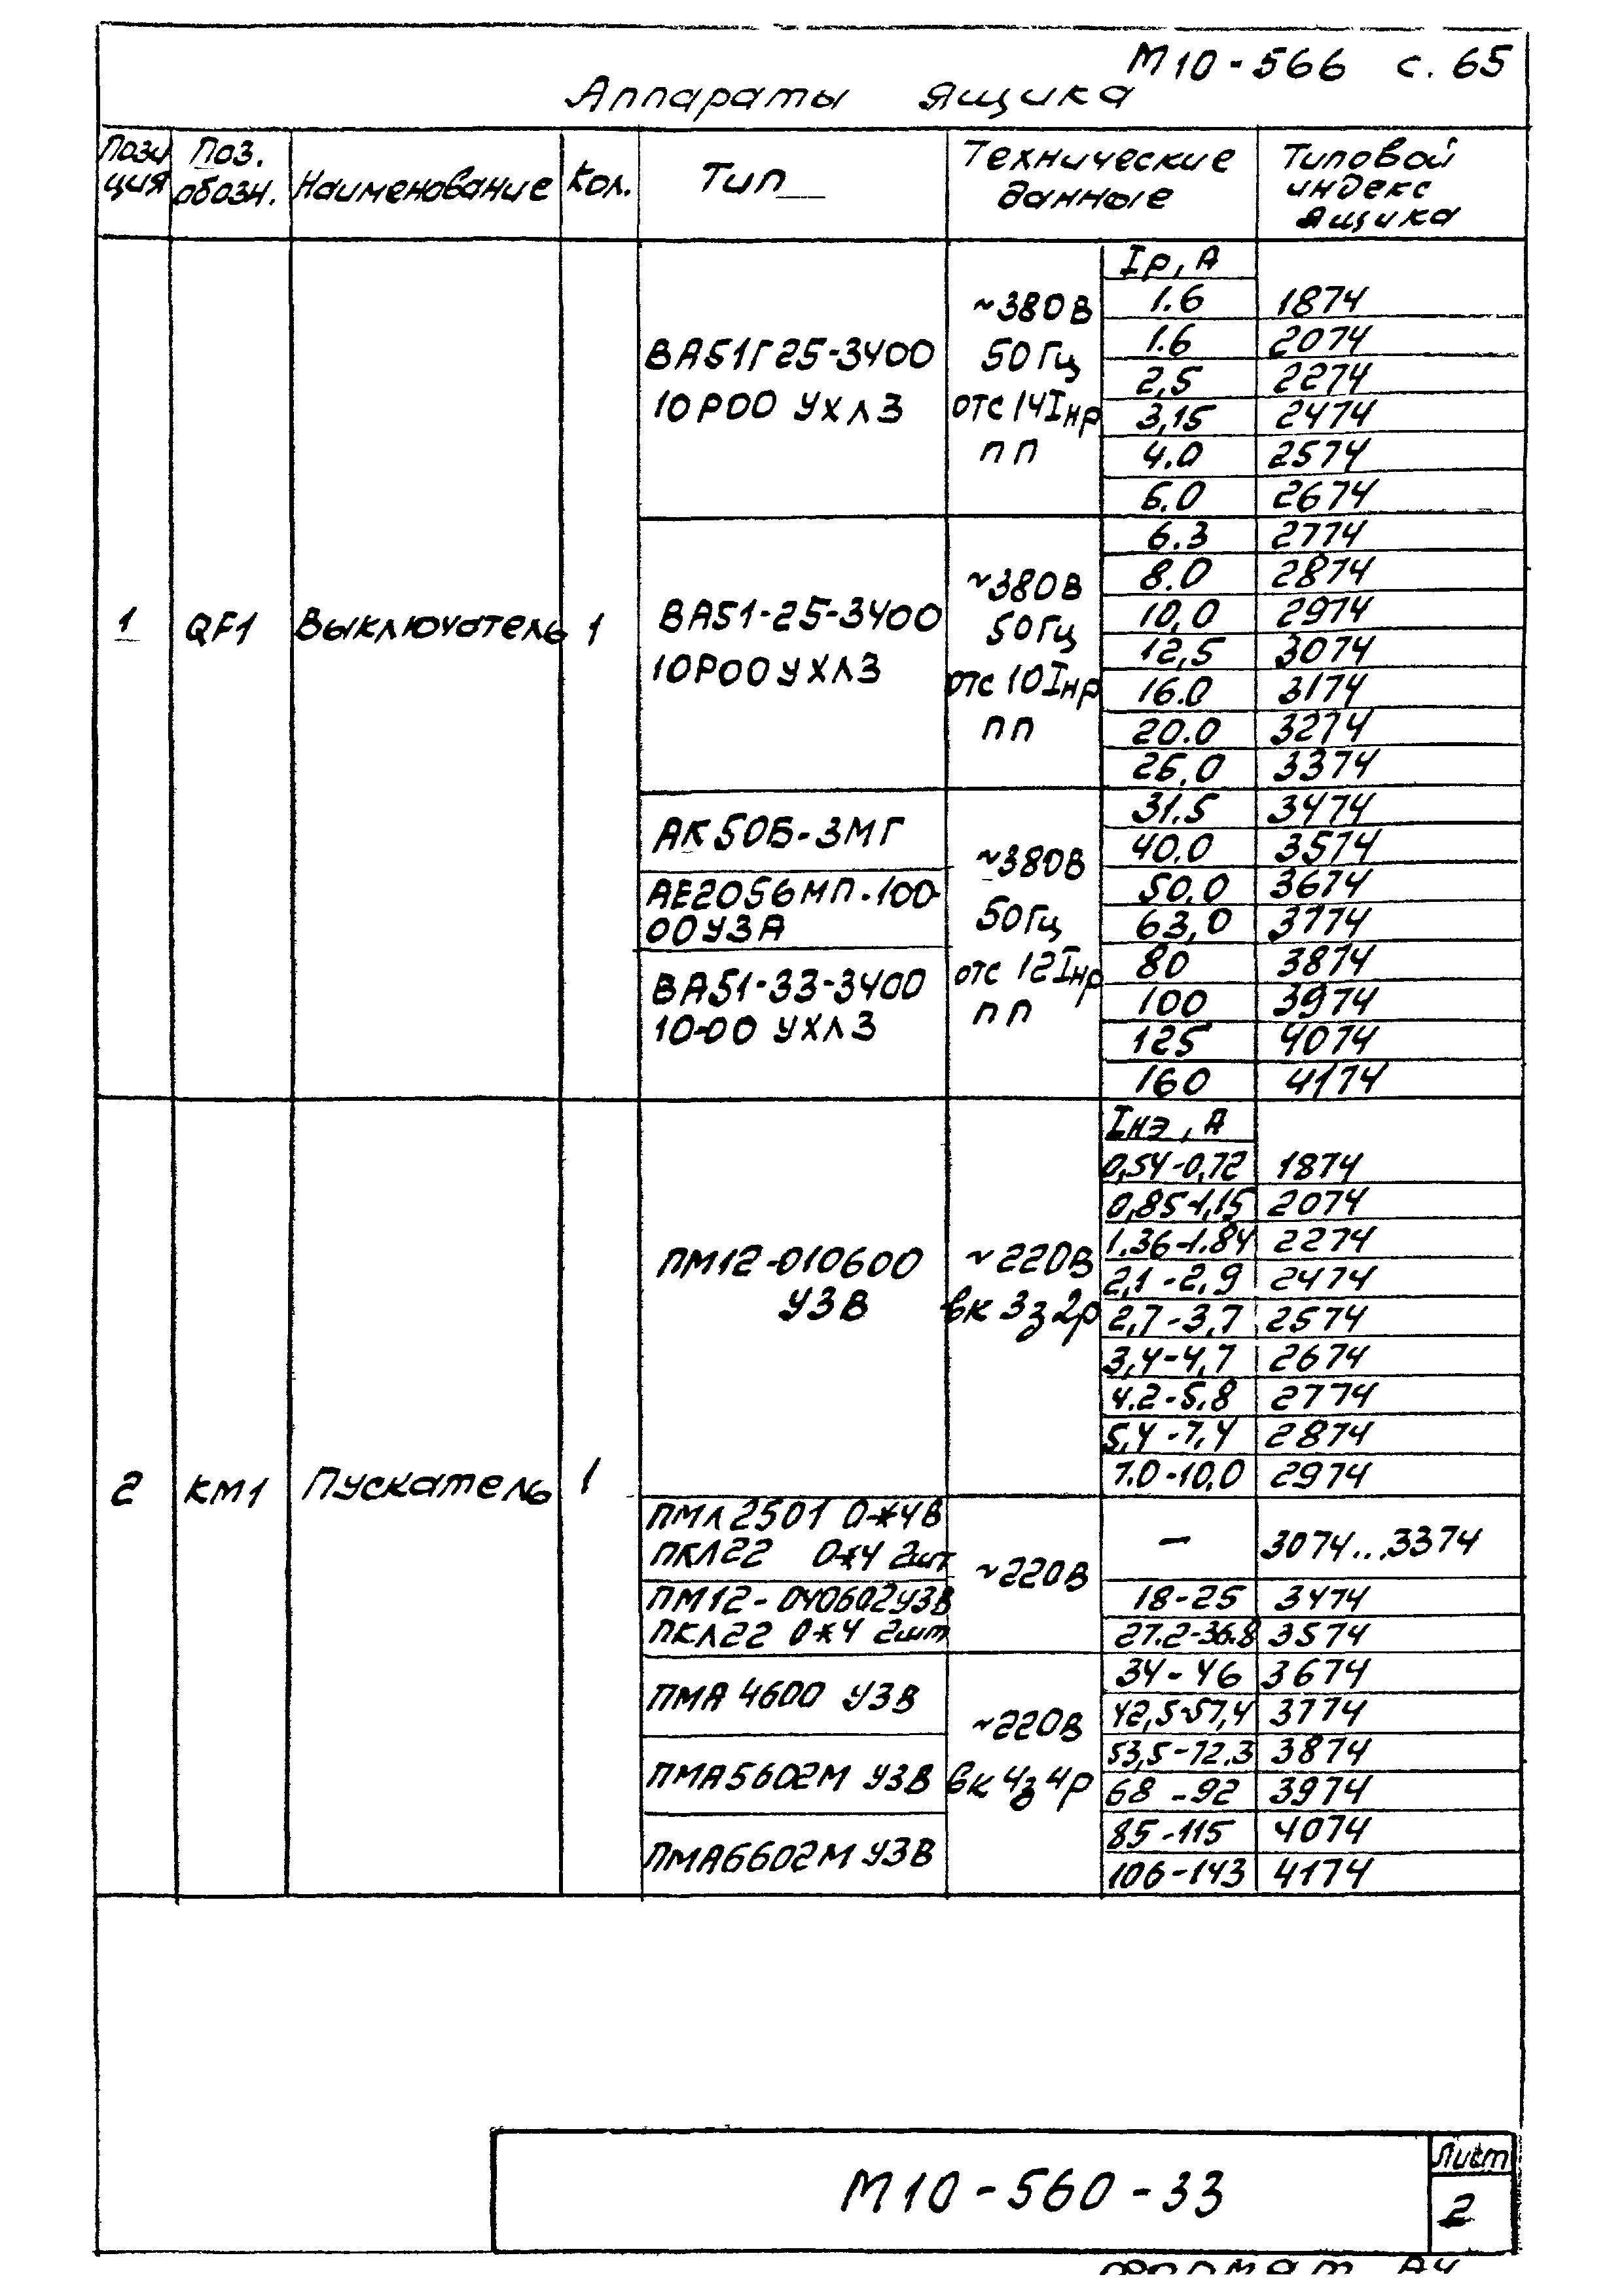 М10-566 с. 65
Аппараты ящика
Пози Поз. Наименование Кол. Тип Технические Типовой
ция обозн. данные индекс
ящика
Iр, А
1.6 1874
1.6 2074
2,5 2274
3,15 2474
4.0 2574
5.0 2674
ВА51Г25-3400
10Р00 УХЛ3
~380В
50Гц
отс 14Iнр
пп
6.3 2774
8.0 2874
10,0 2974
12,5 3074
16.0 3174
20.0 3274
25,0 3374
1 QF1 Выключатель 1
ВА51-25-3400
10Р00УХЛ3
~380В
50Гц
отс 10Iнр
пп
31.5 3474
40.0 3574
50.0 3674
63,0 3774
80 3874
100 3974
125 4074
160 4174
АК50Б-3МГ
АЕ2056МП-100-
00У3А
ВА51-33-3400
10-00 УХЛ3
~380В
50Гц
отс 12Iнр
пп
Iнэ, А
0,54-0,72 1874
0,85-1,15 2074
1.36-1.84 2274
2,1-2,9 2474
2,7-3,7 2574
3,4-4,7 2674
4.2-5.8 2774
5,4-7,4 2874
7.0-10,0 2974
ПМ12-010600
У3В
~220В
вк 3з2р
2 КМ1 Пускатель 1
ПМЛ2501 0*4В
ПКЛ22 0*4 2шт
~220В
- 3074...3374
ПМ12-040602У3В
ПКЛ22 0*4 2шт
18-25 3474
27.2-36.8 3574
ПМА 4600 У3В
34-46 3674
42,5-57,4 3774
~220В
вк 4з4р
ПМА5602М У3В
53,5-72.3 3874
68-92 3974
ПМА6602М У3В
85-115 4074
106-143 4174
М10-560-33
Лист
2
Формат А4